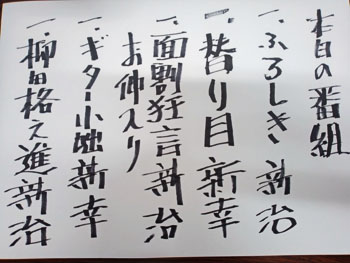 本日の番組
一、ふろしき 新治
一、替り目 新幸
一、面割狂言 新治
お仲入り
一、ギター小噺 新幸
一、柳田格之進 新治